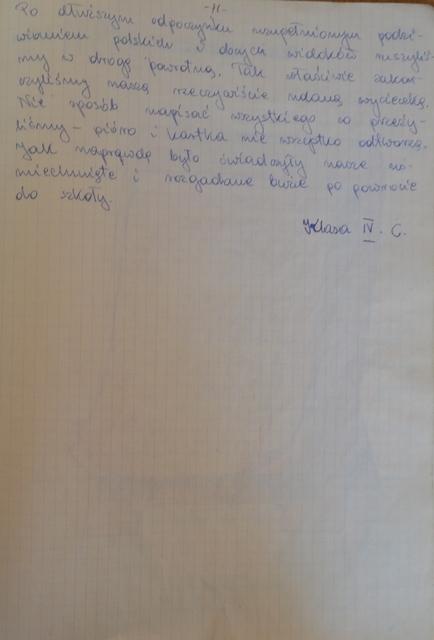 -11-
Po dłuższym odpoczynku uzupełnionym podzi-
wianiem polskich i obcych widoków ruszyliś-
my w drogę powrotną. Tak właściwie zakoń-
czyliśmy naszą rzeczywiście udaną wycieczkę.
Nie sposób napisać wszystkiego co przeży-
liśmy - pióro i kartka nie wszystko odtworzą.
Jak naprawdę było świadczyły nasze uś-
miechnięte i rozgadane buzie po powrocie
do szkoły.
Klasa IV. C.